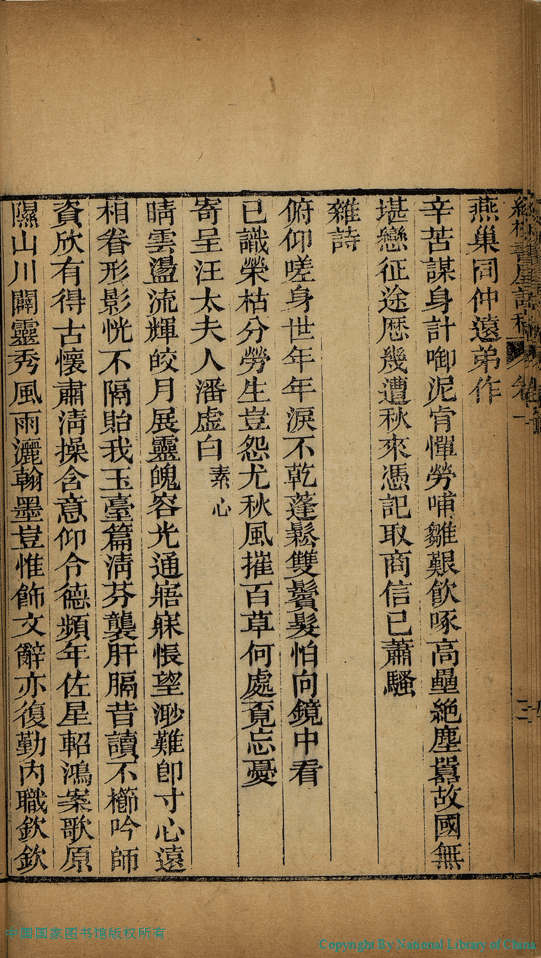 燕巢同仲遠弟作
辛苦謀身計啣泥肎憚勞哺雛艱飮啄高壘絶塵囂故國無
堪戀征途歴幾遭秋來憑記取商信已蕭騷
雜詩
俯仰嗟身世年年淚不乾蓬鬆雙鬢髮怕向鏡中看
已識榮枯分勞生豈怨尤秋風摧百草何處覔忘憂
寄呈汪太夫人潘虛白素心
晴雲盪流輝皎月展靈魄容光通寤寐悵望渺難卽寸心遠
相眷形影恍不隔貽我玉臺篇淸芬襲肝膈昔讀不櫛吟師
資欣有得古懷肅淸操含意仰令德頻年佐星軺鴻案歌原
隰山川闢靈秀風雨灑翰墨豈惟飾文辭亦復勤內職欽欽
中国国家图书馆版权所有
Copyright By National Library of China